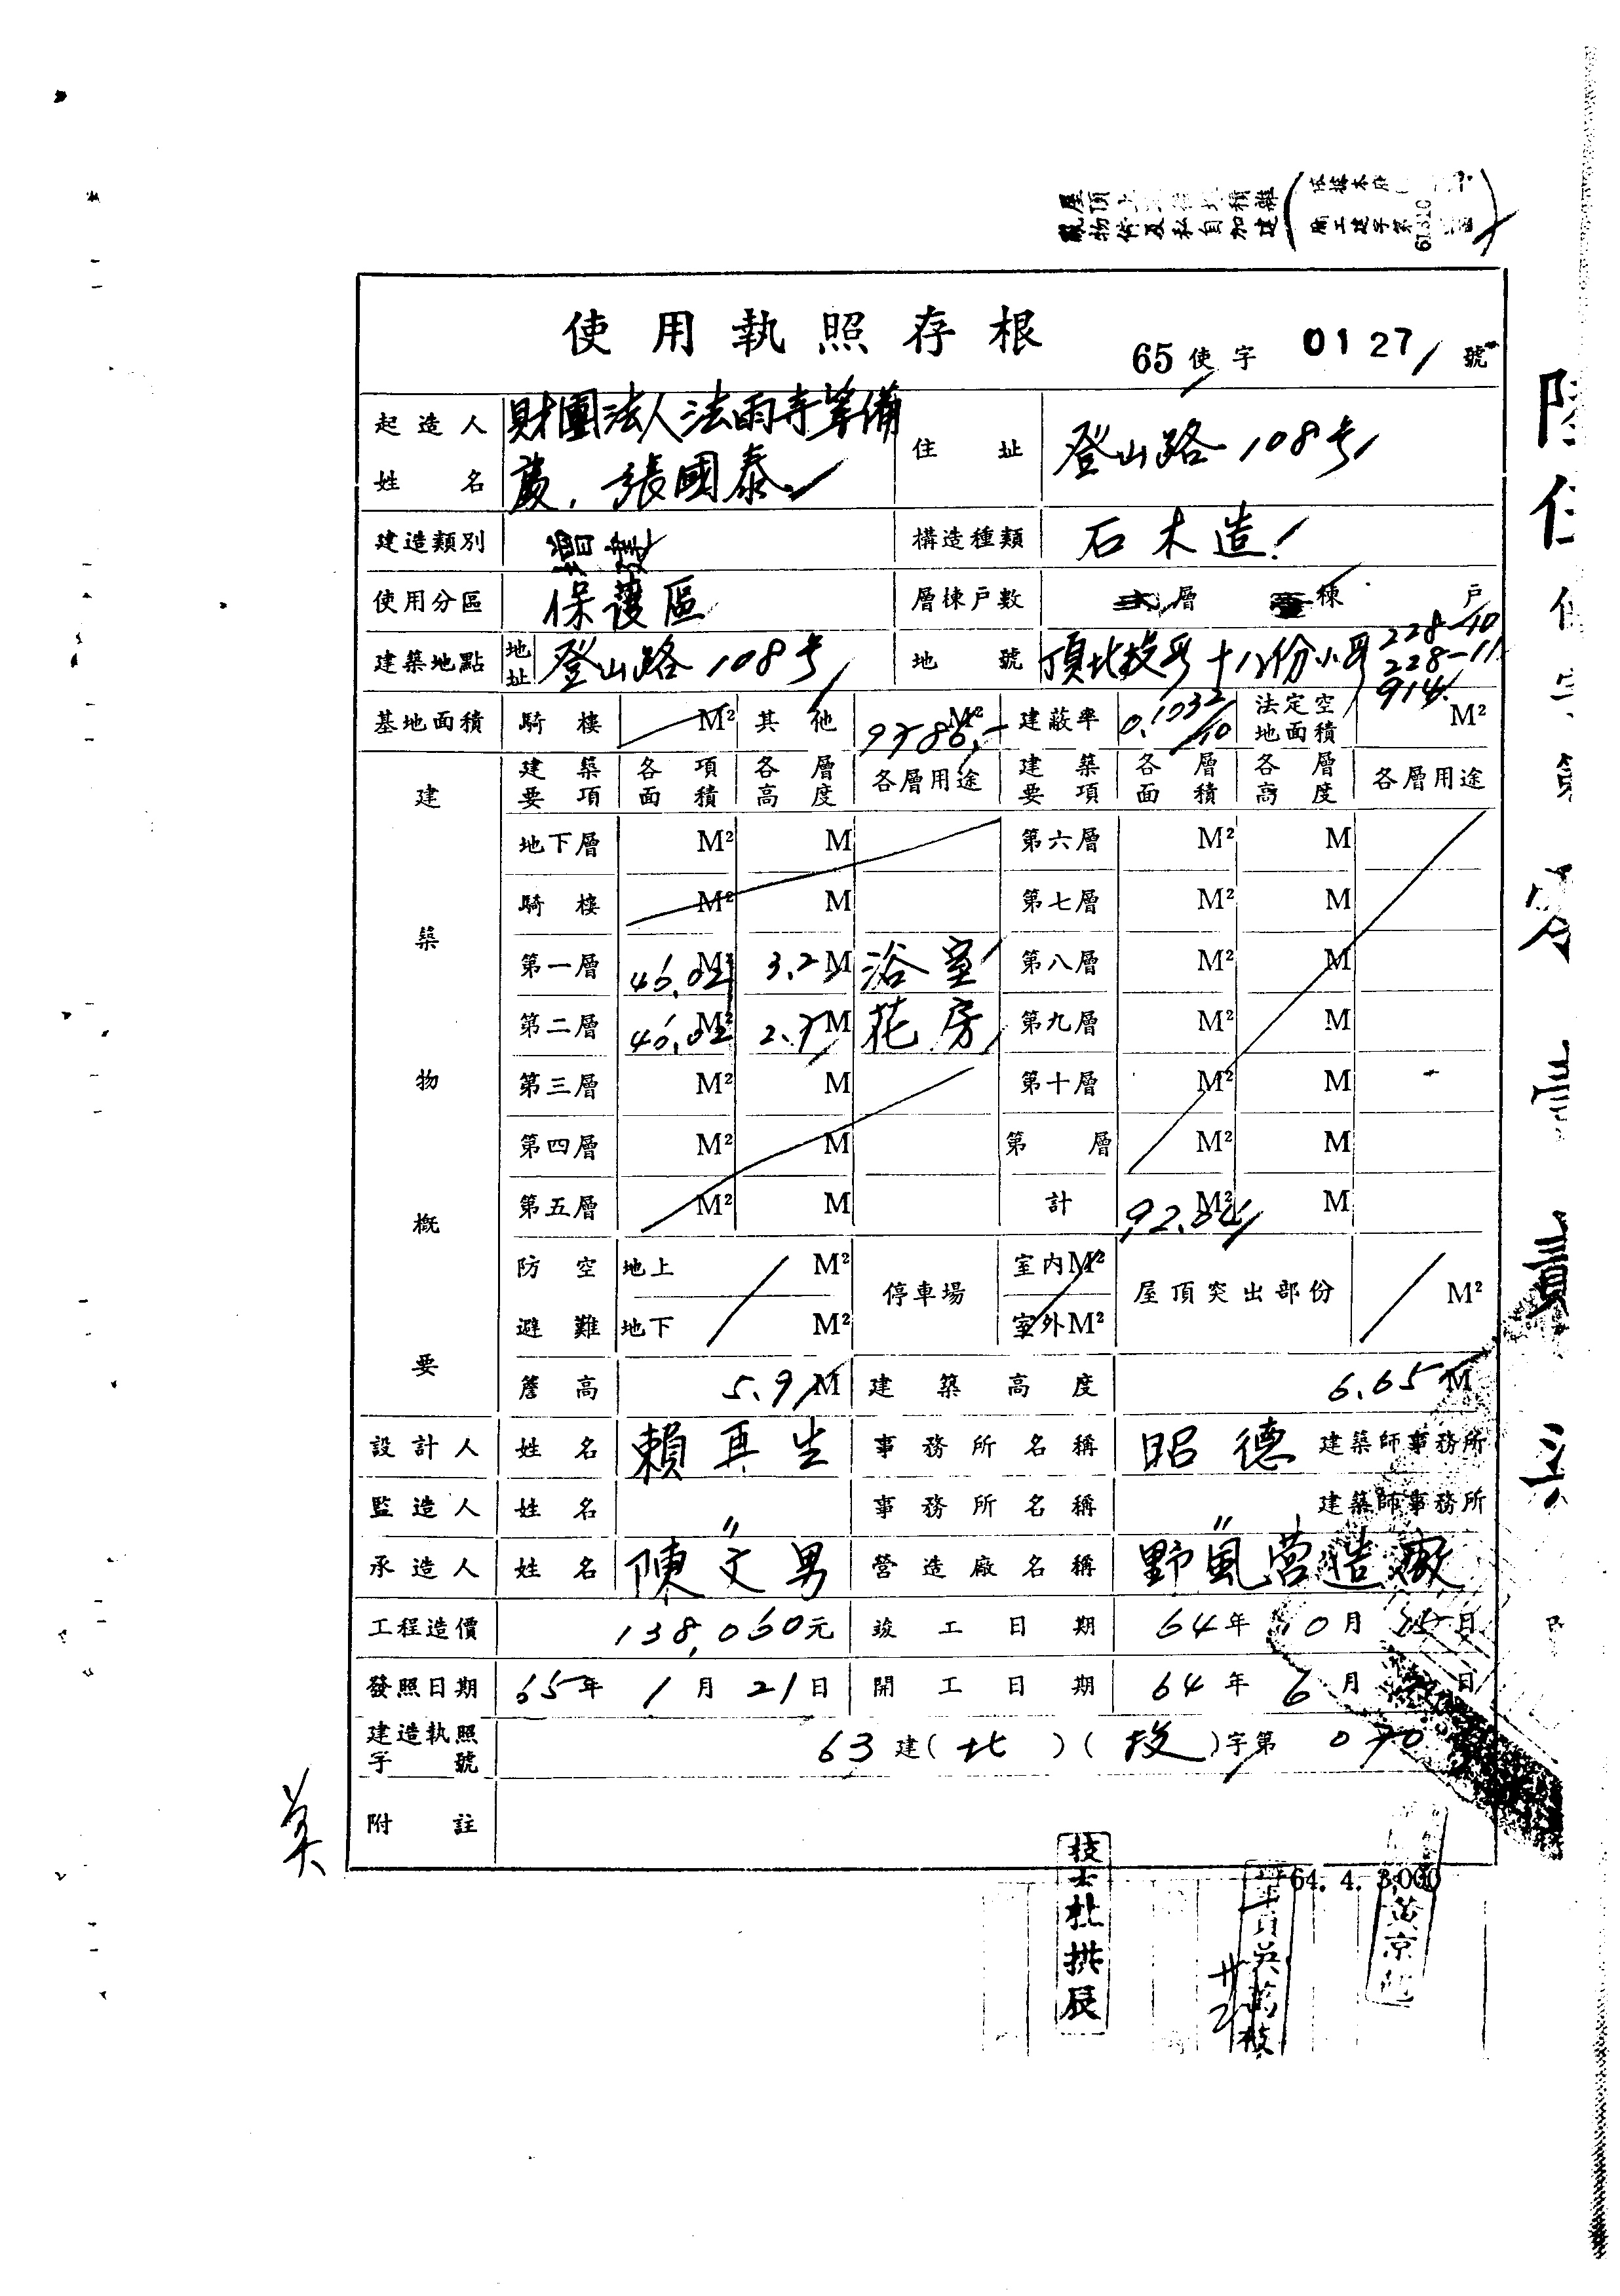 使用執照存根
65 使字 0127 號
起造人姓名 財團法人法雨寺籌備處、張國泰
住址 登山路108号
建造類別 增建
構造種類 石木造
使用分區 保護區
層棟戶數 層 棟 戶
建築地點 地址 登山路108号
地號 頂北投段十八份小段 228-10 228-11 914
基地面積 騎樓 M² 其他 M² 建蔽率 法定空地面積 M²
建築物概要
建築要項 各項面積 各層高度 各層用途 建築要項 各層面積 各層高度 各層用途
地下層 M² M 第六層 M² M
騎樓 M² M 第七層 M² M
第一層 46.02 M² 3.2 M 浴室 第八層 M² M
第二層 46.02 M² 2.7 M 花房 第九層 M² M
第三層 M² M 第十層 M² M
第四層 M² M 第 層 M² M
第五層 M² M 計 92.04 M² M
防空避難 地上 M² 地下 M² 停車場 室內 M² 室外 M² 屋頂突出部份 M²
簷高 5.9 M 建築高度 6.65 M
設計人 姓名 賴再生 事務所名稱 昭德 建築師事務所
監造人 姓名 〃 事務所名稱 〃 建築師事務所
承造人 姓名 陳文男 營造廠名稱 野風营造廠
工程造價 138,060元 竣工日期 64年10月 日
發照日期 65年1月21日 開工日期 64年6月 日
建造執照字號 63 建(北)(投)字第
附註
64. 4. 3,000
技士杜拱辰